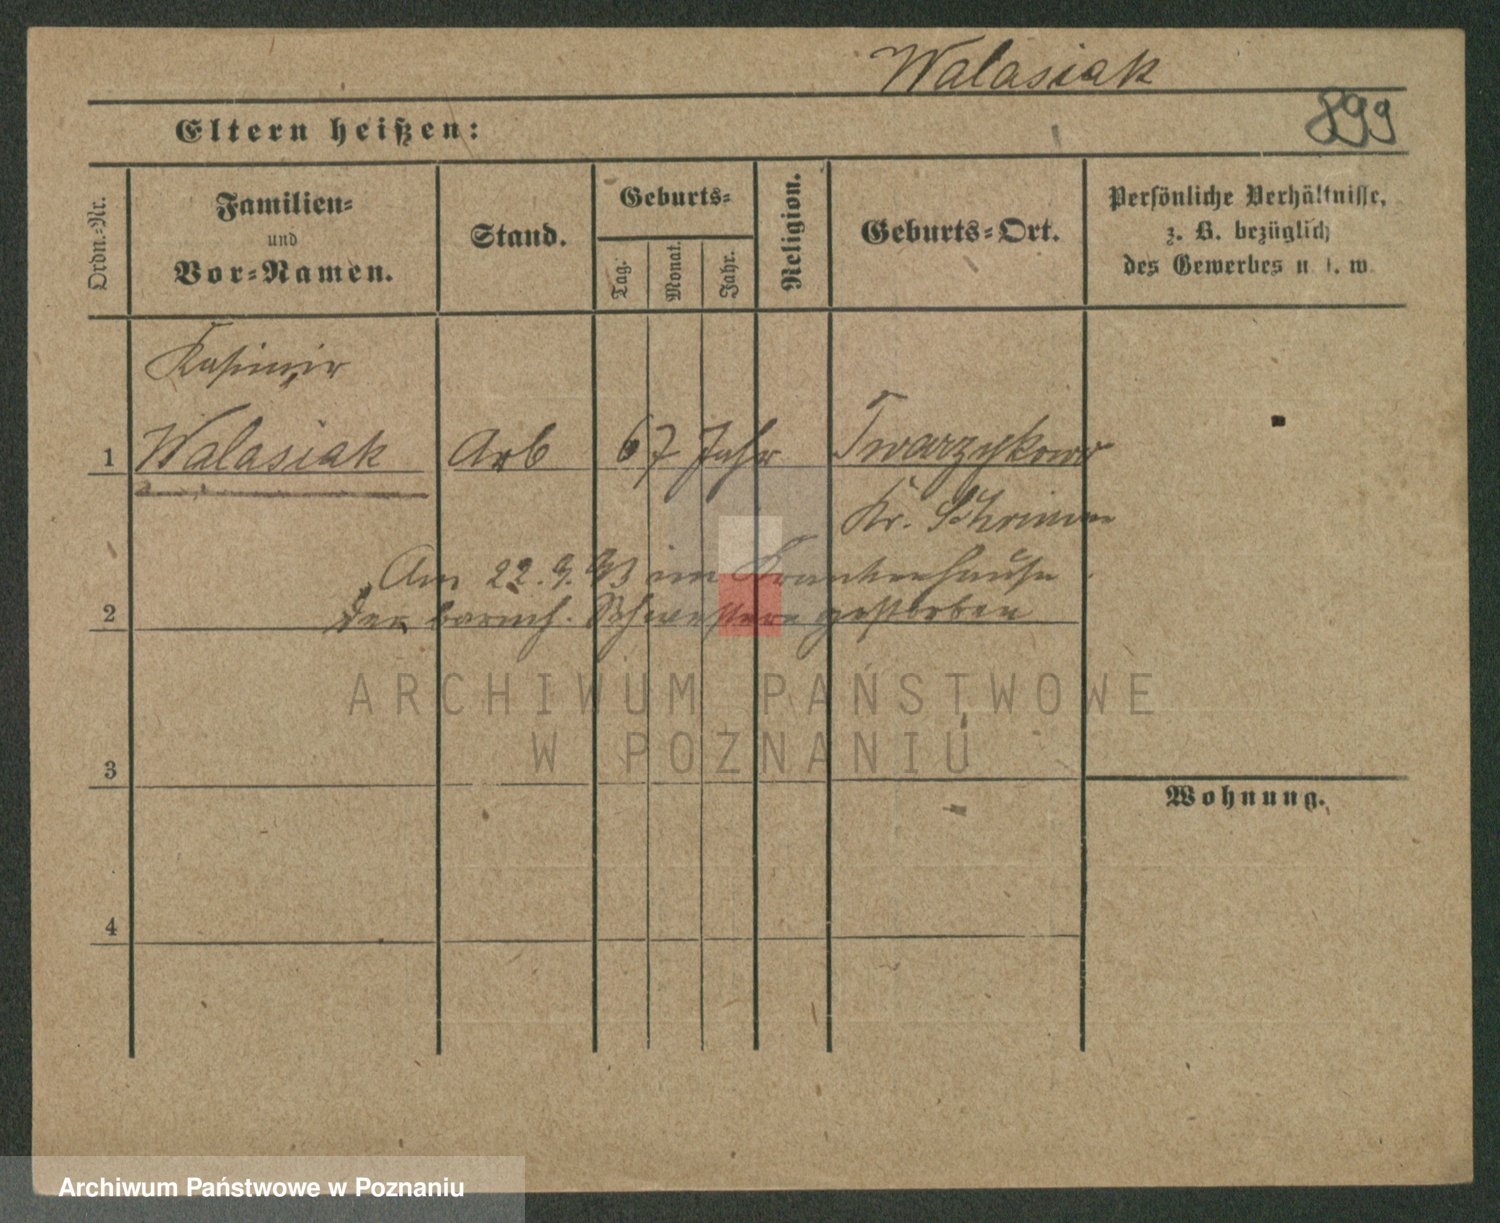 Walasiak
899
Eltern heißen:
Ordn.-Nr.
Familien-
und
Vor-Namen.
Stand.
Geburts-
Tag.
Monat.
Jahr.
Religion.
Geburts-Ort.
Persönliche Verhältnisse,
z. B. bezüglich
des Gewerbes u. s. w.
Kasimir
1 Walasiak Arb 67 Jahr Twarzykowo
Kr. Schrimm
Am 22.9.93 im Krankenhause
2 der barmh. Schwestern gestorben
ARCHIWUM PAŃSTWOWE
W POZNANIU
3
Wohnung.
4
Archiwum Państwowe w Poznaniu